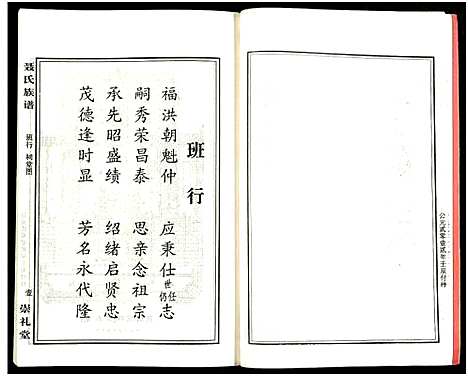 公元贰零壹贰年壬辰付梓
班行
福洪朝魁仲 应秉仕世仍任志
嗣秀荣昌泰 思亲念祖宗
承先昭盛绩 绍绪启贤忠
茂德逢时显 芳名永代隆
聂氏族谱 班行 祠堂图 壹 崇礼堂